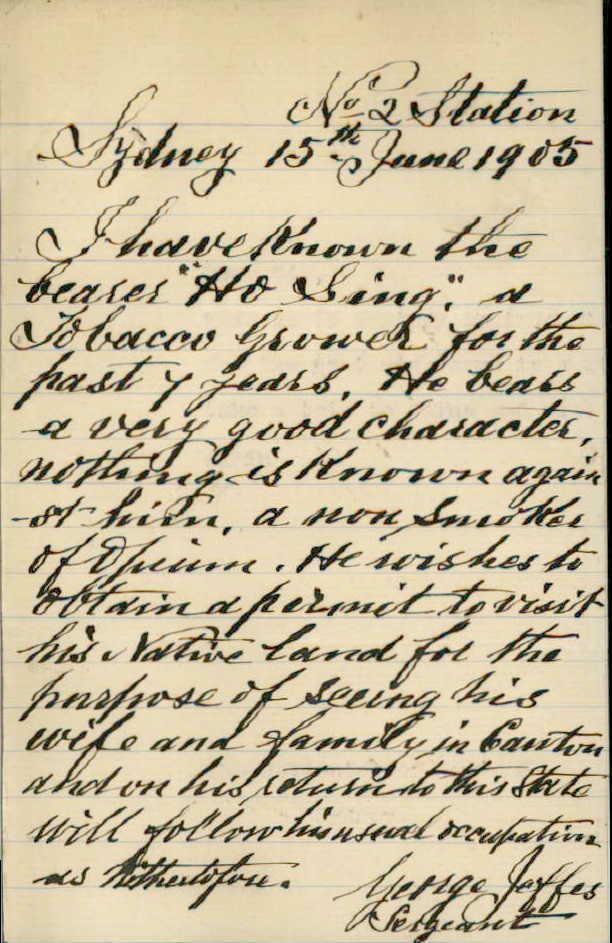 No 2 Station
Sydney 15th June 1905
I have Known the
bearer "Ho Sing", a
Tobacco Grower for the
past 7 years, He bears
a very good character,
nothing is Known again
-st him, a non smoker
of Opium. He wishes to
obtain a permit to visit
his Native land for the
purpose of seeing his
wife and family in Canton
and on his return to this State
will follow his usual occupation
as hithertofore.
George Jeffes
Sergeant